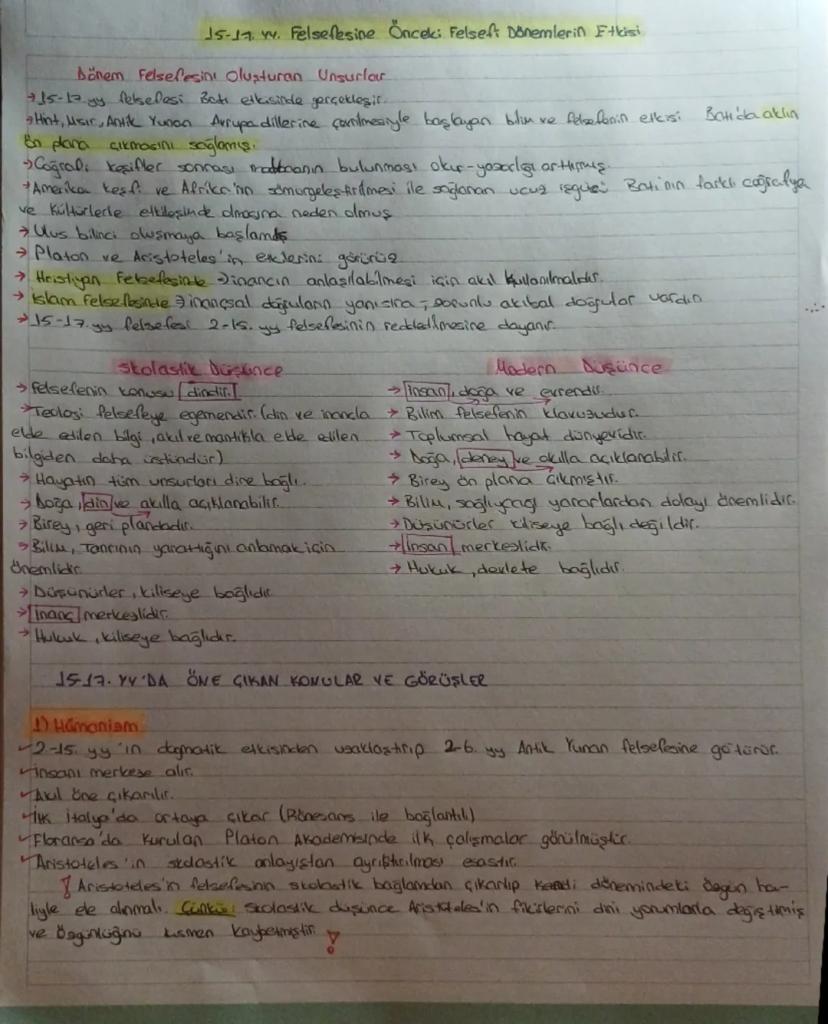 15-17. yy. Felsefesine Önceki Felsefi Dönemlerin Etkisi
Dönem Felsefesini Oluşturan Unsurlar
→15-17. yy felsefesi Batı etkisinde gerçekleşir.
→Hint, Mısır, Antik Yunan Avrupa dillerine çevrilmesiyle başlayan bilim ve felsefenin etkisi Batı'da aklın
ön plana çıkmasını sağlamış.
→Coğrafi keşifler sonrası matbaanın bulunması okur-yazarlığı arttırmış.
→Amerika keşfi ve Afrika'nın sömürgeleştirilmesi ile sağlanan ucuz işgücü Batı'nın farklı coğrafya
ve kültürlerle etkileşimde olmasına neden olmuş
→ Ulus bilinci oluşmaya başlamış
→ Platon ve Aristoteles'in etkilerini görürüz
→ Hristiyan Felsefesinde → inancın anlaşılabilmesi için akıl kullanılmalıdır.
→ İslam Felsefesinde → inançsal doğruların yanısıra, zorunlu akıbal doğrular vardır.
→ 15-17. yy felsefesi 2-15. yy felsefesinin reddedilmesine dayanır.
Skolastik Düşünce
→ Felsefenin konusu dindir.
→Teoloji felsefeye egemendir. (din ve inançla
elde edilen bilgi, akıl ve mantıkla elde edilen
bilgiden daha üstündür)
→ Hayatın tüm unsurları dine bağlı.
→ Doğa, din ve akılla açıklanabilir.
→ Birey, geri plandadır.
→ Bilim, Tanrının yarattığını anlamak için
önemlidir.
→ Düşünürler, kiliseye bağlıdır
→ İnanç merkezlidir.
→ Hukuk, kiliseye bağlıdır.
Modern Düşünce
→ İnsan, doğa ve evrendir.
→ Bilim felsefenin klavuzudur.
→ Toplumsal hayat dünyevidir.
→ Doğa, deney ve akılla açıklanabilir.
→ Birey ön plana çıkmıştır.
→ Bilim, sağlıycağı yararlardan dolayı önemlidir.
→Düşünürler kiliseye bağlı değildir.
→ İnsan merkezlidir.
→ Hukuk, devlete bağlıdır.
15-17. YY'DA ÖNE ÇIKAN KONULAR VE GÖRÜŞLER
1) Hümanizm
✓2-15. yy'ın dogmatik etkisinden uzaklaştırıp 2-6. yy Antik Yunan felsefesine götürür.
✓İnsanı merkeze alır.
✓Akıl öne çıkarılır.
✓İlk İtalya'da ortaya çıkar (Rönesans ile bağlantılı)
✓Floransa'da kurulan Platon Akademisinde ilk çalışmalar görülmüştür.
✓Aristoteles'in skolastik anlayıştan ayrıştırılması esastır.
! Aristoteles'in felsefesinin skolastik bağlamdan çıkarılıp kendi dönemindeki özgün ha-
liyle ele alınmalı. Çünkü; skolastik düşünce Aristoteles'in fikirlerini dini yorumlarla değiştirmiş
ve özgünlüğünü kısmen kaybetmiştir !